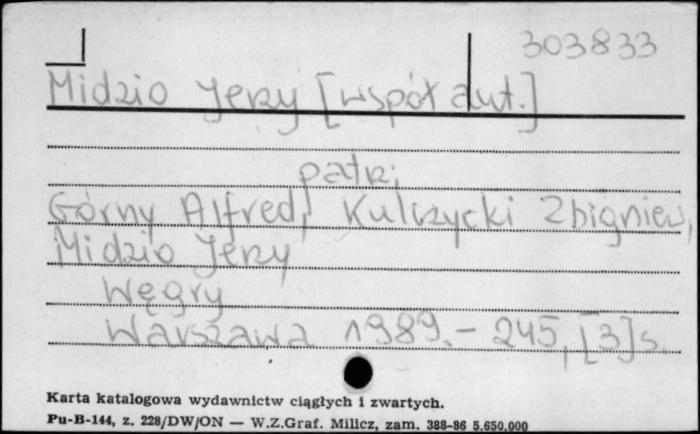 303833
Midzio Jerzy [współaut.]
patrz
Górny Alfred, Kulczycki Zbigniew,
Midzio Jerzy
Węgry
Warszawa 1989. – 245, [3] s.
Karta katalogowa wydawnictw ciągłych i zwartych.
Pu-B-144, z. 228/DW/ON — W.Z.Graf. Milicz, zam. 388-86 5.650.000